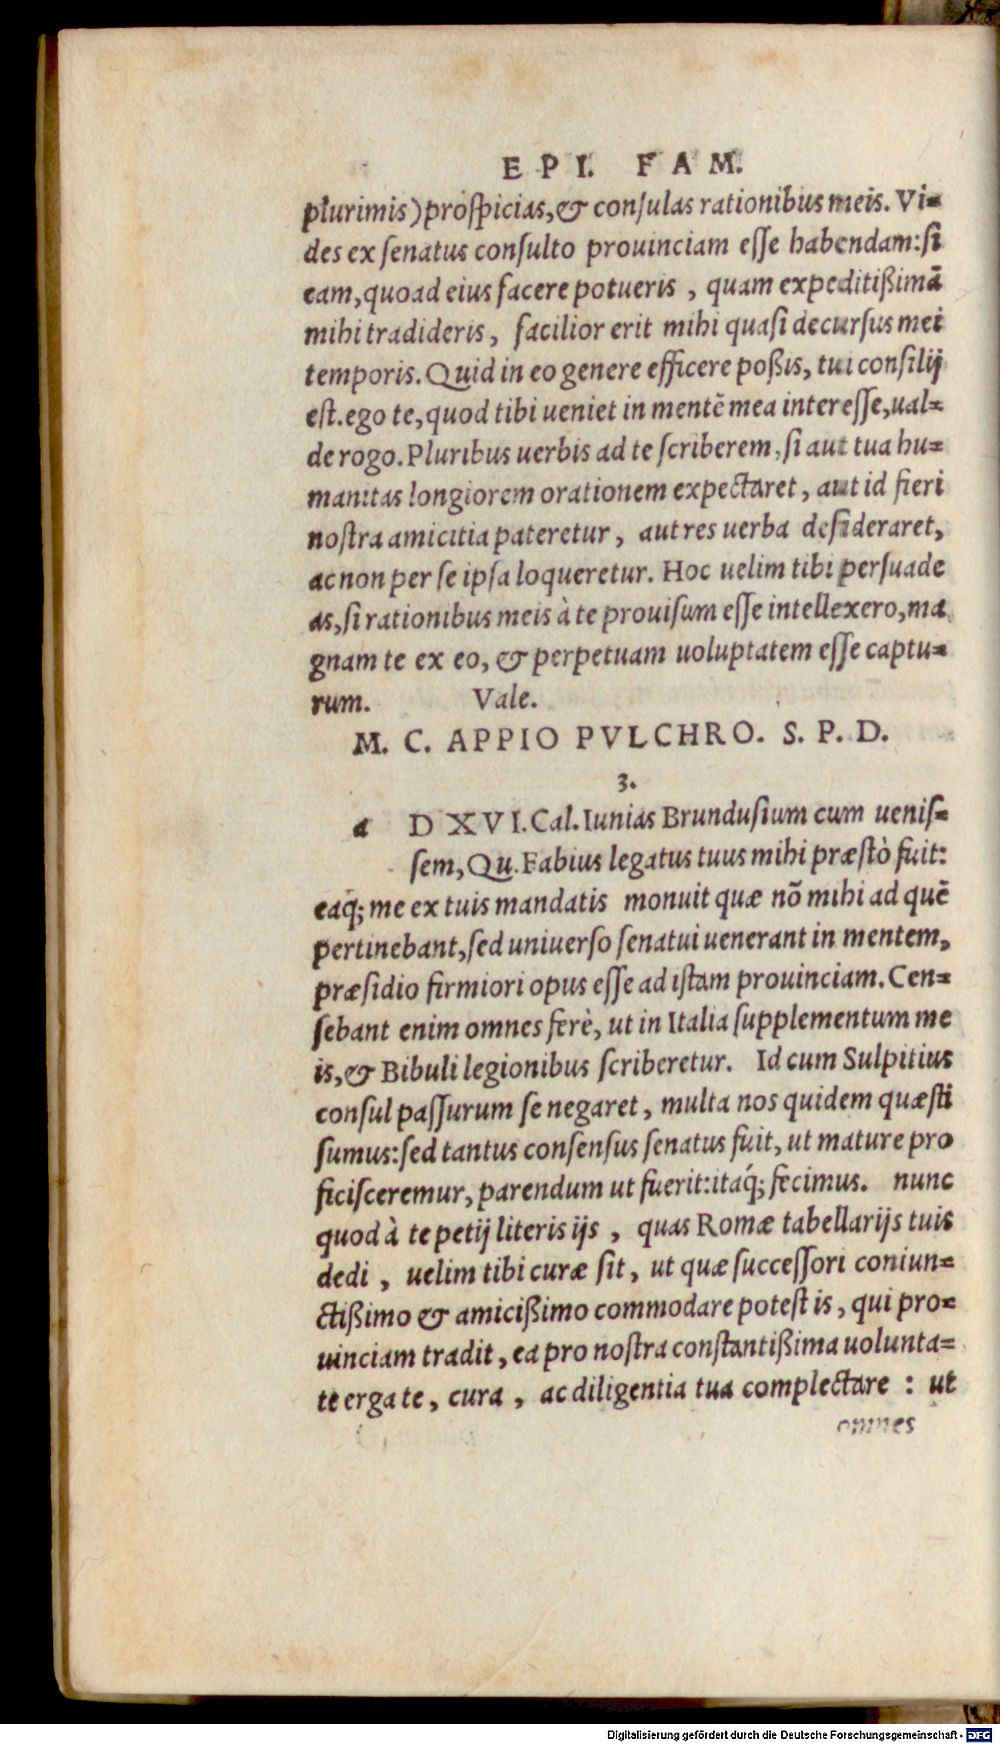 EPI. FAM.
plurimis) prospicias, & consulas rationibus meis. Vi=
des ex senatus consulto prouinciam esse habendam: si
eam, quoad eius facere potueris, quam expeditißimā
mihi tradideris, facilior erit mihi quasi decursus mei
temporis. Quid in eo genere efficere poßis, tui consilij
est. ego te, quod tibi ueniet in mentē mea interesse, ual=
de rogo. Pluribus uerbis ad te scriberem, si aut tua hu=
manitas longiorem orationem expectaret, aut id fieri
nostra amicitia pateretur, aut res uerba desideraret,
ac non per se ipsa loqueretur. Hoc uelim tibi persuade
as, si rationibus meis à te prouisum esse intellexero, ma
gnam te ex eo, & perpetuam uoluptatem esse captu=
rum. Vale.
M. C. APPIO PVLCHRO. S. P. D.
3.
a D XVI. Cal. Iunias Brundusium cum uenis=
sem, Qu. Fabius legatus tuus mihi præstò fuit:
eaq́; me ex tuis mandatis monuit quæ nō mihi ad quē
pertinebant, sed uniuerso senatui uenerant in mentem,
præsidio firmiori opus esse ad istam prouinciam. Cen=
sebant enim omnes ferè, ut in Italia supplementum me
is, & Bibuli legionibus scriberetur. Id cum Sulpitius
consul passurum se negaret, multa nos quidem quæsti
sumus: sed tantus consensus senatus fuit, ut mature pro
ficisceremur, parendum ut fuerit: itaq́; fecimus. nunc
quod à te petij literis ijs, quas Romæ tabellarijs tuis
dedi, uelim tibi curæ sit, ut quæ successori coniun=
ctißimo & amicißimo commodare potest is, qui pro=
uinciam tradit, ea pro nostra constantißima uolunta=
te erga te, cura, ac diligentia tua complectare: ut
omnes
Digitalisierung gefördert durch die Deutsche Forschungsgemeinschaft - DFG